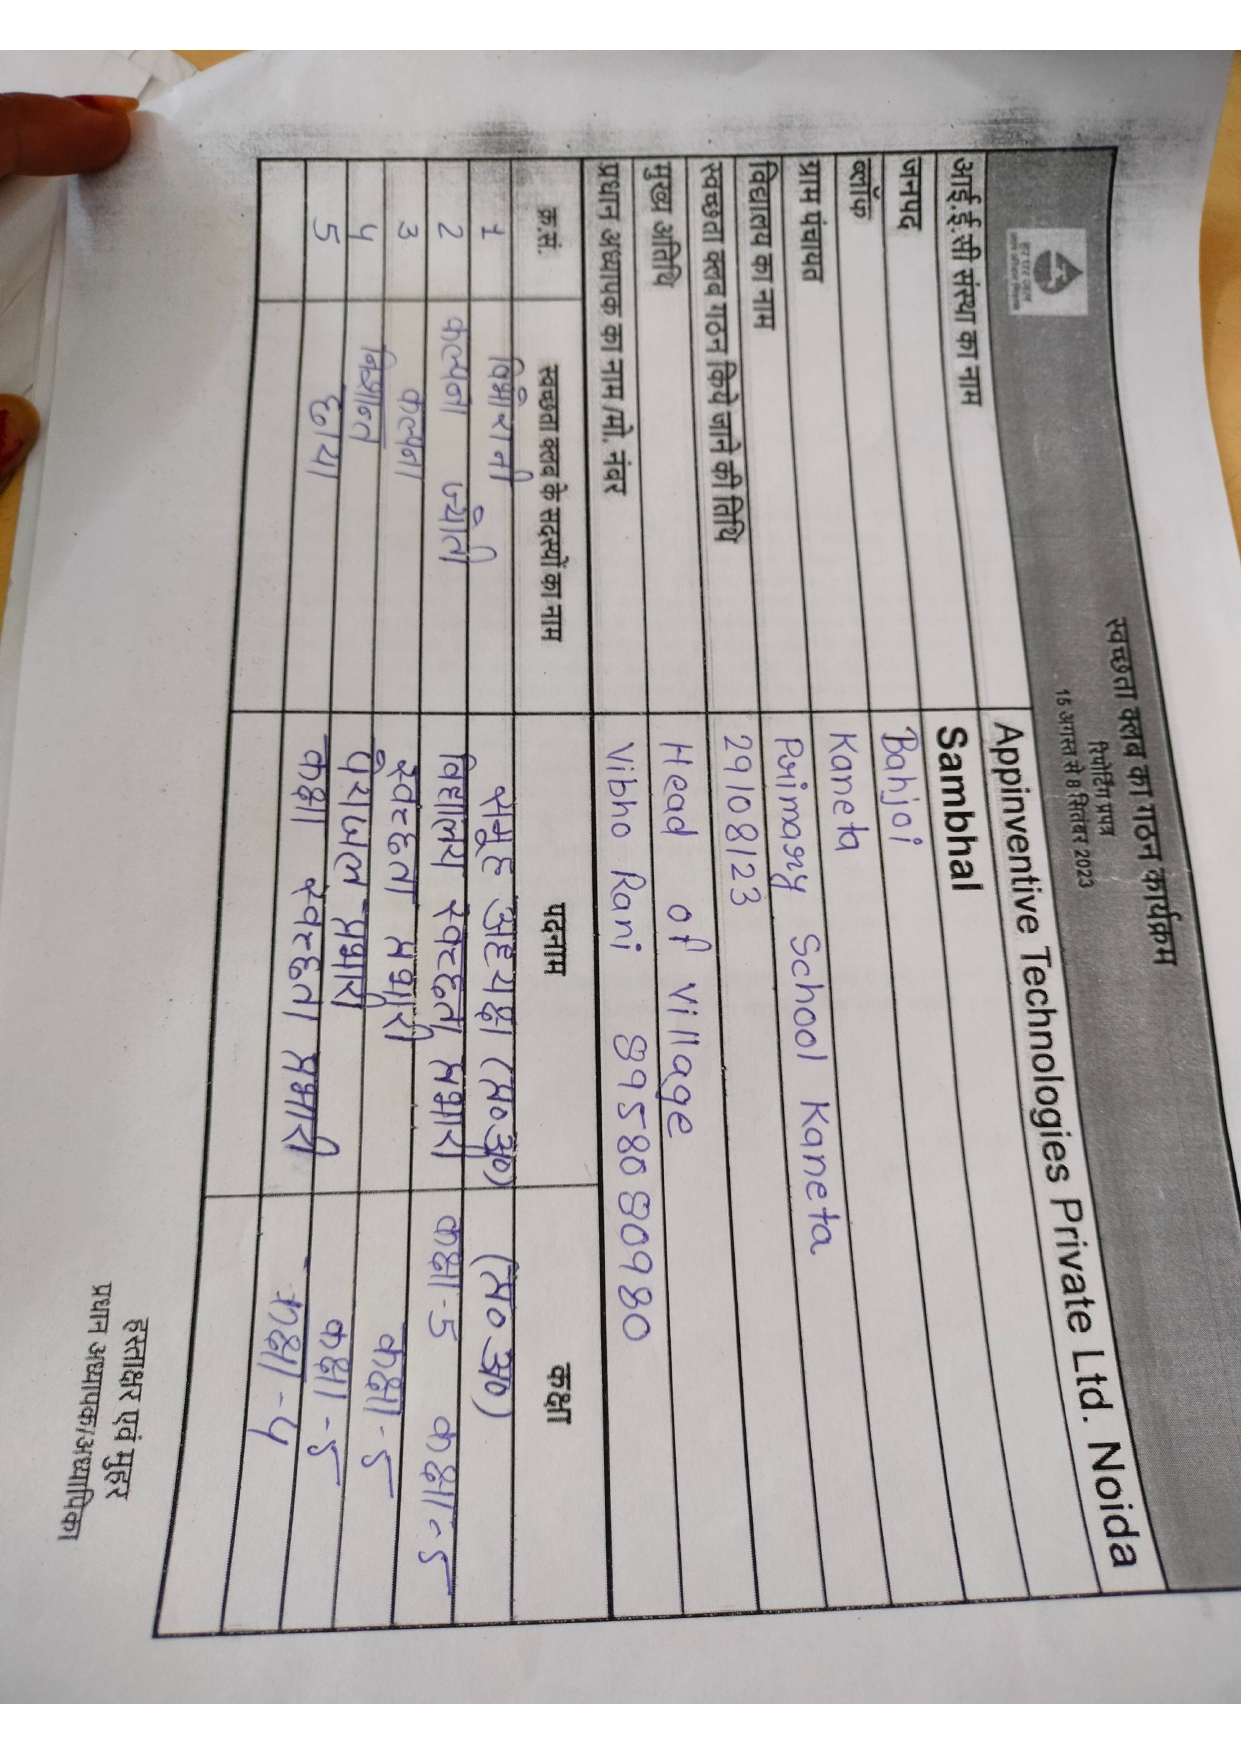 स्वच्छता क्लब का गठन कार्यक्रम
रिपोर्टिंग प्रपत्र
15 अगस्त से 8 सितंबर 2023
आई.ई.सी संस्था का नाम Appinventive Technologies Private Ltd. Noida
जनपद Sambhal
ब्लॉक Bahjoi
ग्राम पंचायत Kaneta
विद्यालय का नाम Primary School Kaneta
स्वच्छता क्लब गठन किये जाने की तिथि 29108123
मुख्य अतिथि Head of village
प्रधान अध्यापक का नाम/मो. नंबर Vibho Rani 8958080980
क्र.सं. स्वच्छता क्लब के सदस्यों का नाम पदनाम कक्षा
1 समूह (प्र०अ०) (प्र०अ०)
2 कल्पना ज्योती विद्यालय स्वच्छता प्रभारी कक्षा-5 कक्षा-5
3 कल्पना स्वच्छता प्रभारी कक्षा-5
4 निशान्त पेयजल प्रभारी कक्षा-5
5 छाया कक्षा स्वच्छता प्रभारी कक्षा-4
हस्ताक्षर एवं मुहर
प्रधान अध्यापक/अध्यापिका